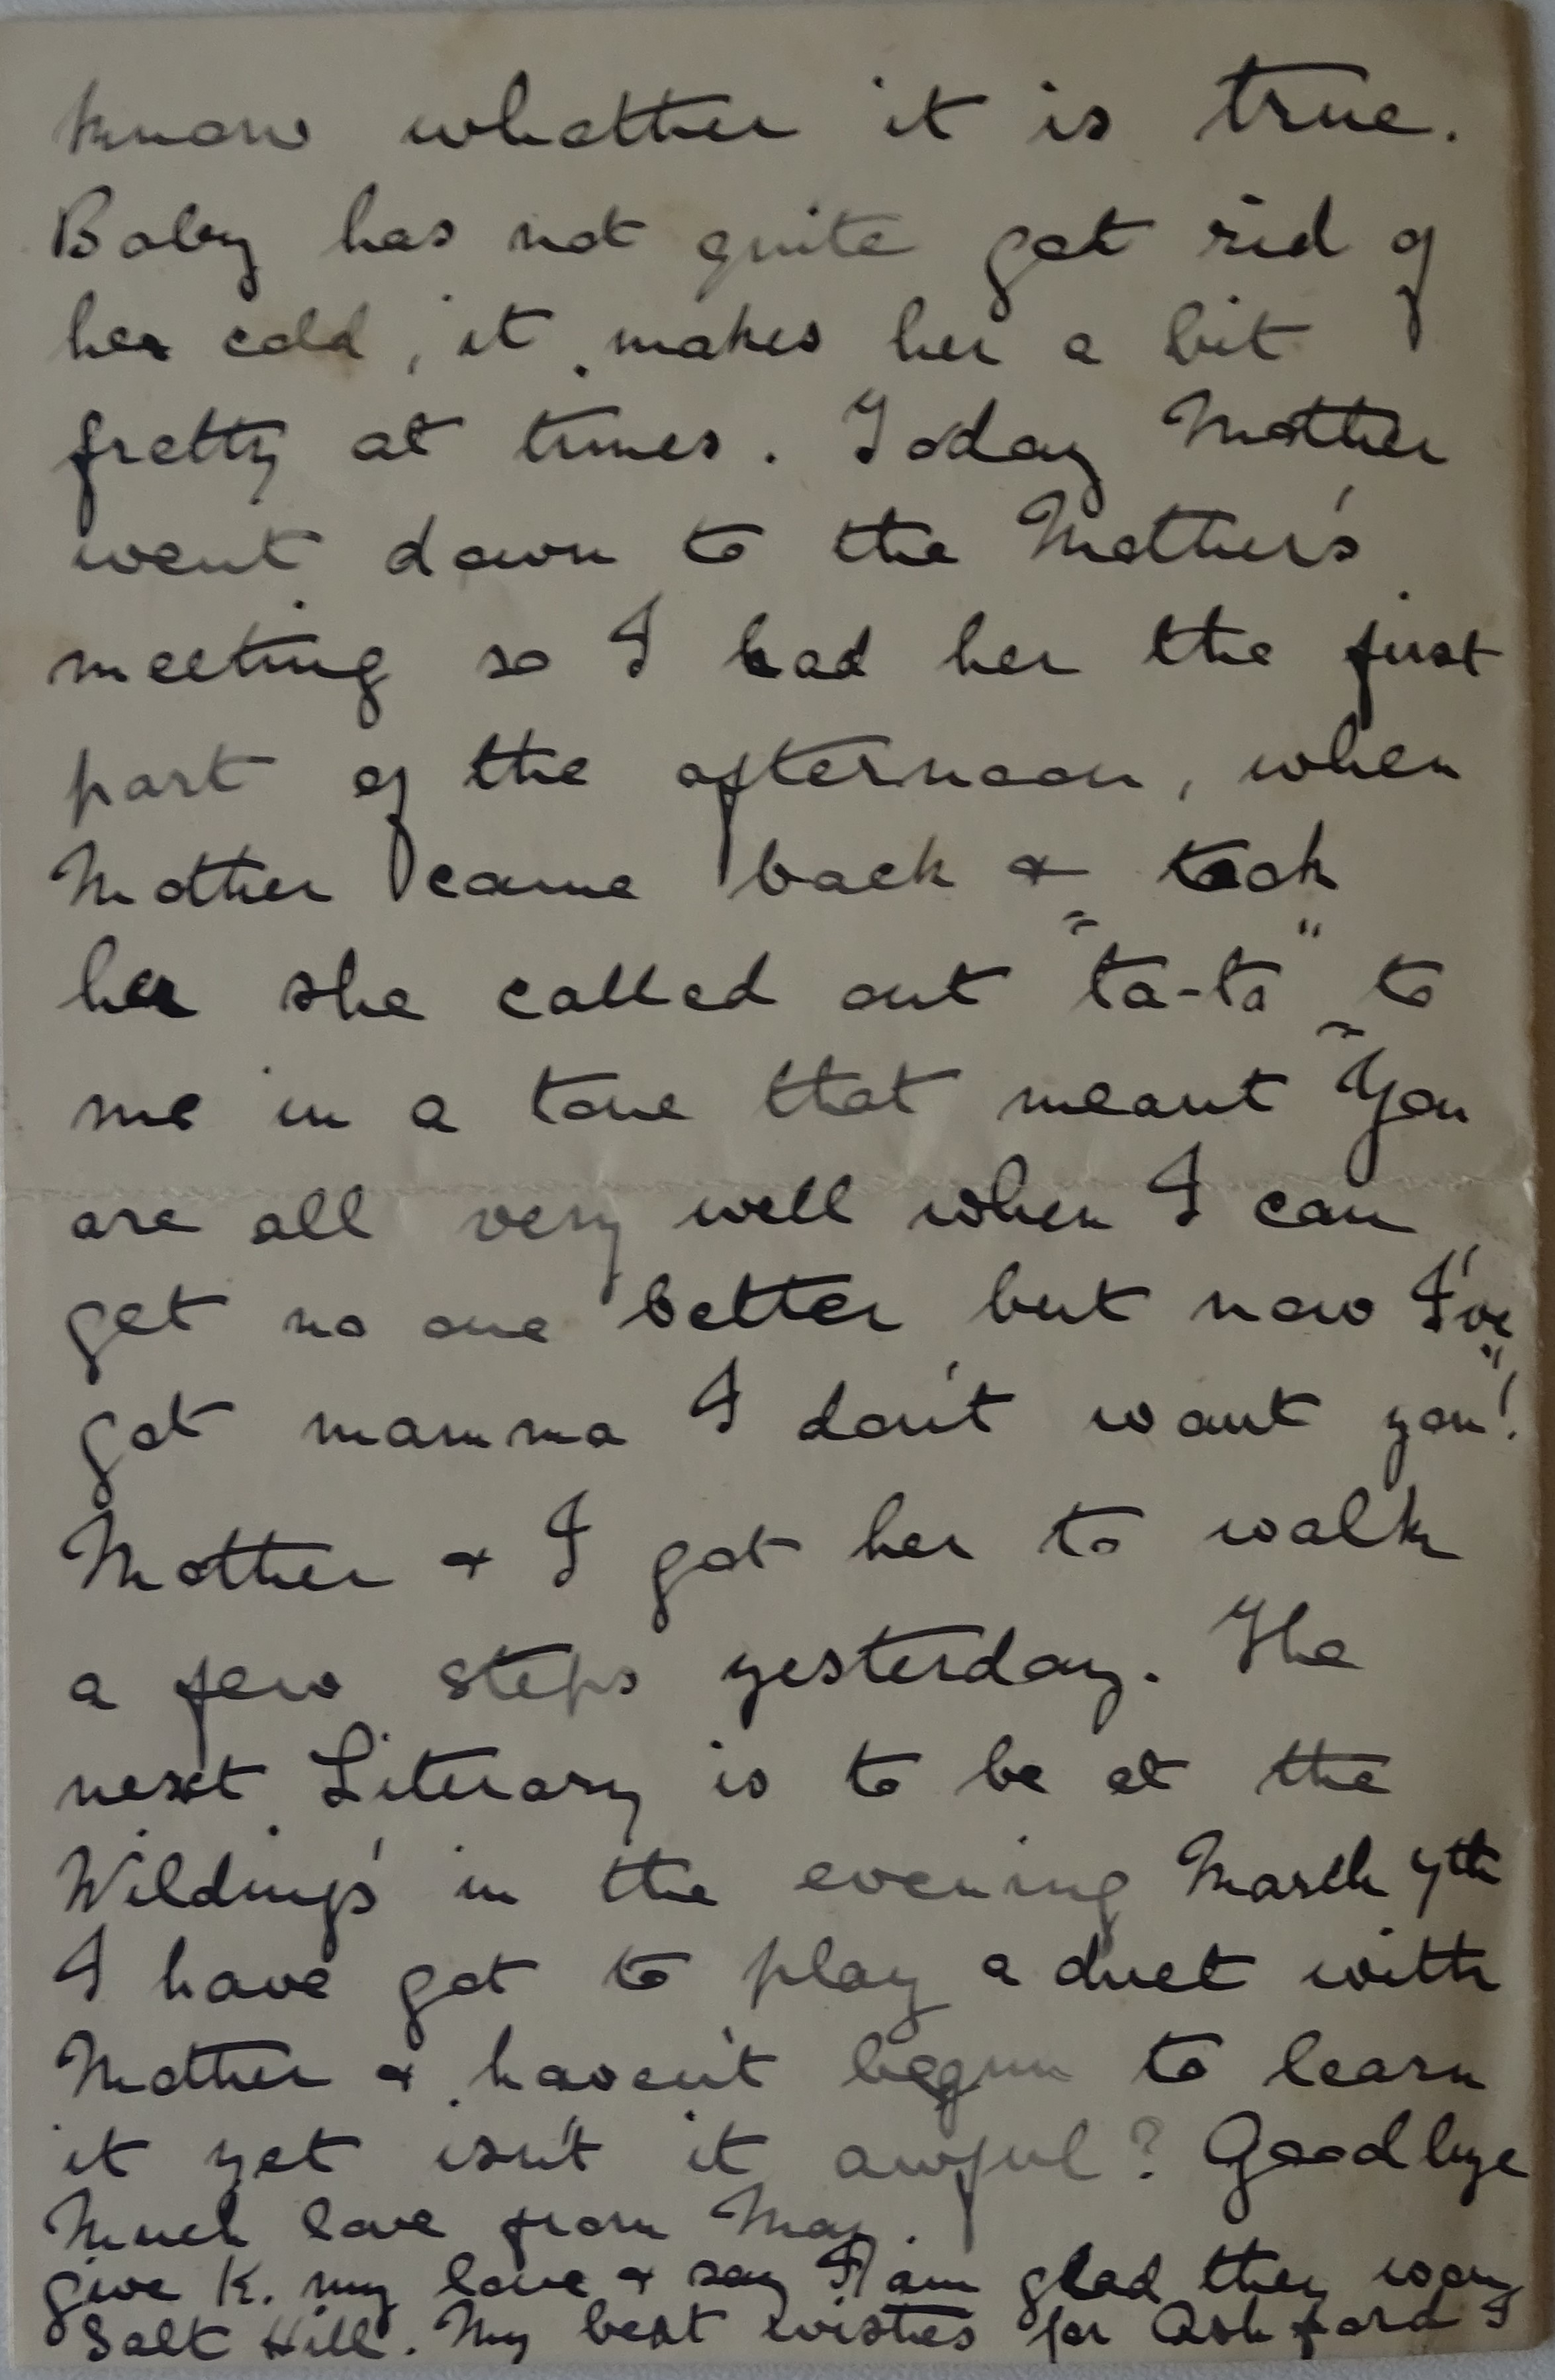 know whether it is true.
Baby has not quite got rid of
her cold, it makes her a bit
fretty at times. Today Mother
went down to the Mother's
meeting so I had her the first
part of the afternoon, when
Mother came back & took
her she called out "ta-ta" to
me in a tone that meant "You
are all very well when I can
get no one better but now I've
got mamma I don't want you"!
Mother & I got her to walk
a few steps yesterday. The
next Literary is to be at the
Wildings' in the evening March 7th
I have got to play a duet with
Mother & haven't begun to learn
it yet isn't it awful? Goodbye
Much love from May.
give K. my love & say I am glad they won
Salt Hill. My best wishes for Ashford